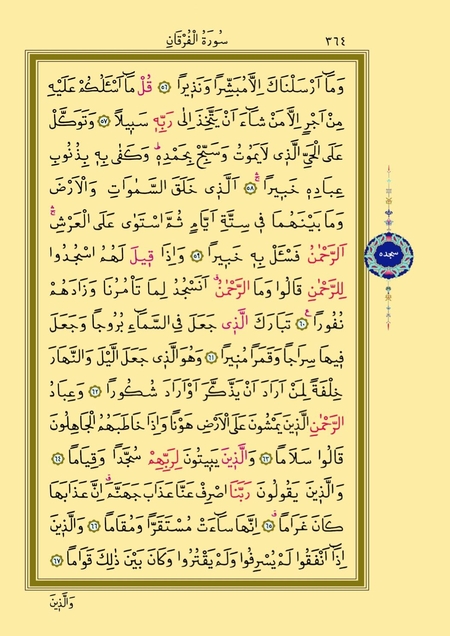 ٣٦٤ سُورَةُ الْفُرْقَانِ
وَمَٓا اَرْسَلْنَاكَ اِلَّا مُبَشِّرًا وَنَذ۪يرًا ﴿٥٦﴾ قُلْ مَٓا اَسْـَٔلُكُمْ عَلَيْهِ
مِنْ اَجْرٍ اِلَّا مَنْ شَٓاءَ اَنْ يَتَّخِذَ اِلٰى رَبِّه۪ سَب۪يلًا ﴿٥٧﴾ وَتَوَكَّلْ
عَلَى الْحَيِّ الَّذ۪ي لَا يَمُوتُ وَسَبِّحْ بِحَمْدِه۪ۜ وَكَفٰى بِه۪ بِذُنُوبِ
عِبَادِه۪ خَب۪يرًاۚ ﴿٥٨﴾ اَلَّذ۪ي خَلَقَ السَّمٰوَاتِ وَالْاَرْضَ
وَمَا بَيْنَهُمَا ف۪ي سِتَّةِ اَيَّامٍ ثُمَّ اسْتَوٰى عَلَى الْعَرْشِۚ
اَلرَّحْمٰنُ فَسْـَٔلْ بِه۪ خَب۪يرًا ﴿٥٩﴾ وَاِذَا ق۪يلَ لَهُمُ اسْجُدُوا
لِلرَّحْمٰنِ قَالُوا وَمَا الرَّحْمٰنُۗ اَنَسْجُدُ لِمَا تَأْمُرُنَا وَزَادَهُمْ
نُفُورًا ﴿٦٠﴾ تَبَارَكَ الَّذ۪ي جَعَلَ فِي السَّمَٓاءِ بُرُوجًا وَجَعَلَ
ف۪يهَا سِرَاجًا وَقَمَرًا مُن۪يرًا ﴿٦١﴾ وَهُوَ الَّذ۪ي جَعَلَ الَّيْلَ وَالنَّهَارَ
خِلْفَةً لِمَنْ اَرَادَ اَنْ يَذَّكَّرَ اَوْ اَرَادَ شُكُورًا ﴿٦٢﴾ وَعِبَادُ
الرَّحْمٰنِ الَّذ۪ينَ يَمْشُونَ عَلَى الْاَرْضِ هَوْنًا وَاِذَا خَاطَبَهُمُ الْجَاهِلُونَ
قَالُوا سَلَامًا ﴿٦٣﴾ وَالَّذ۪ينَ يَب۪يتُونَ لِرَبِّهِمْ سُجَّدًا وَقِيَامًا ﴿٦٤﴾
وَالَّذ۪ينَ يَقُولُونَ رَبَّنَا اصْرِفْ عَنَّا عَذَابَ جَهَنَّمَۗ اِنَّ عَذَابَهَا
كَانَ غَرَامًاۗ ﴿٦٥﴾ اِنَّهَا سَٓاءَتْ مُسْتَقَرًّا وَمُقَامًا ﴿٦٦﴾ وَالَّذ۪ينَ
اِذَٓا اَنْفَقُوا لَمْ يُسْرِفُوا وَلَمْ يَقْتُرُوا وَكَانَ بَيْنَ ذٰلِكَ قَوَامًا ﴿٦٧﴾
وَالَّذ۪ينَ
سجده